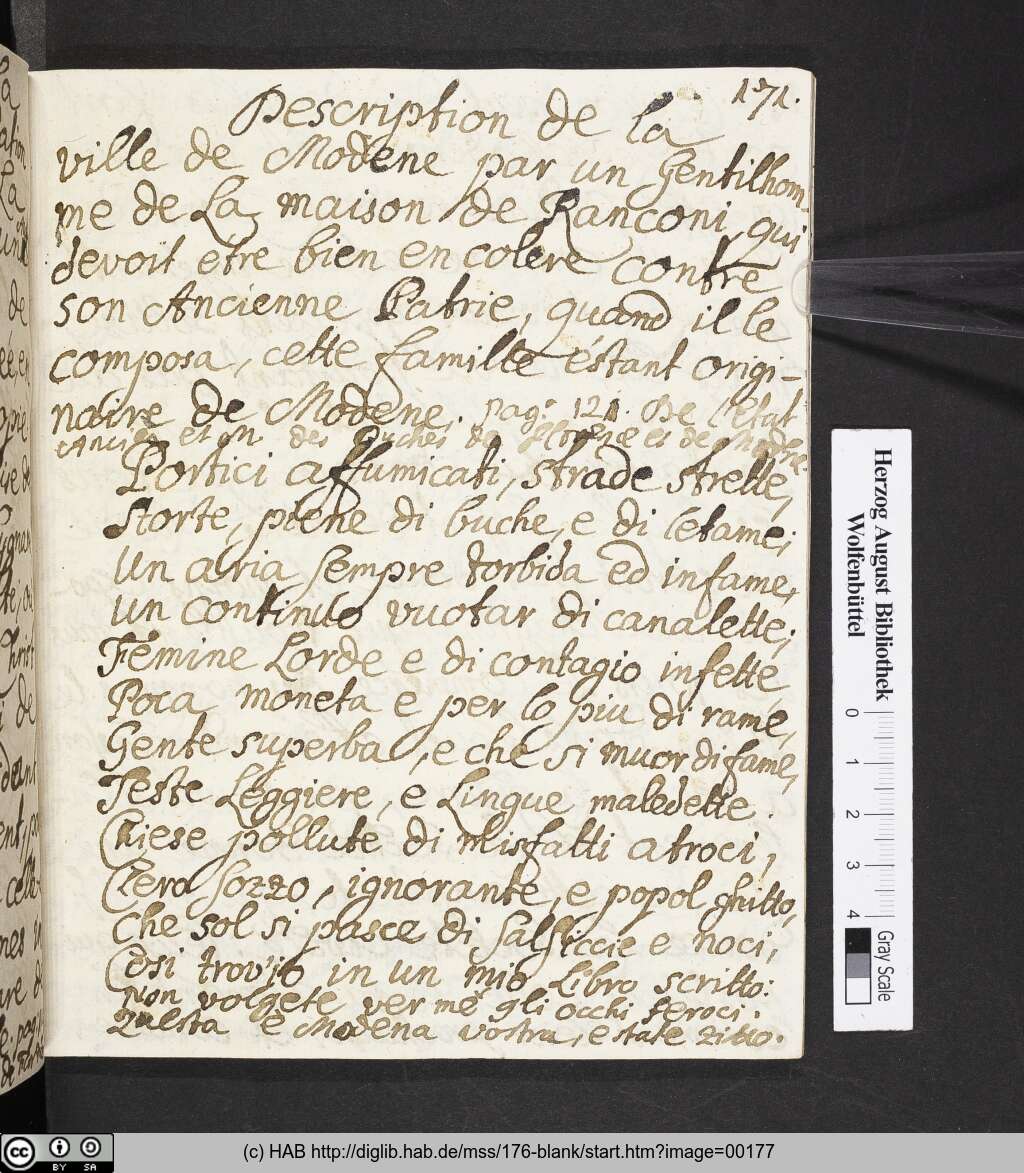 171.
Description de la
ville de Modene par un Gentilhom
me de La maison de Ranconi, qui
devoit etre bien en colere contre
son Ancienne Patrie, quand il le
composa, cette famille éstant origi-
naire de Modene. pag. 121. De l'Etat
Ancien et m. des Duches de Florence et de Modene.
Portici affumicati, strade strette,
Storte, piene di buche, e di letame;
Un aria sempre torbida ed infame,
un continuo vuotar di canalette;
Femine Lorde e di contagio infette
Poca moneta e per lo piu di rame,
Gente superba, e che si muor di fame,
Teste Leggiere, e Lingue maledette.
Chiese pollute di misfatti atroci,
Clero sozzo, ignorante, e popol ghitto,
Che sol si pasce di Salsiccie e noci,
Cosi trov'io in un mio Libro scritto:
Non volgete ver me gli occhi feroci.
Questa è Modena vostra, e state zitto.
Herzog August Bibliothek
Wolfenbüttel
0 1 2 3 4
Gray Scale
cc BY SA
(c) HAB http://diglib.hab.de/mss/176-blank/start.htm?image=00177